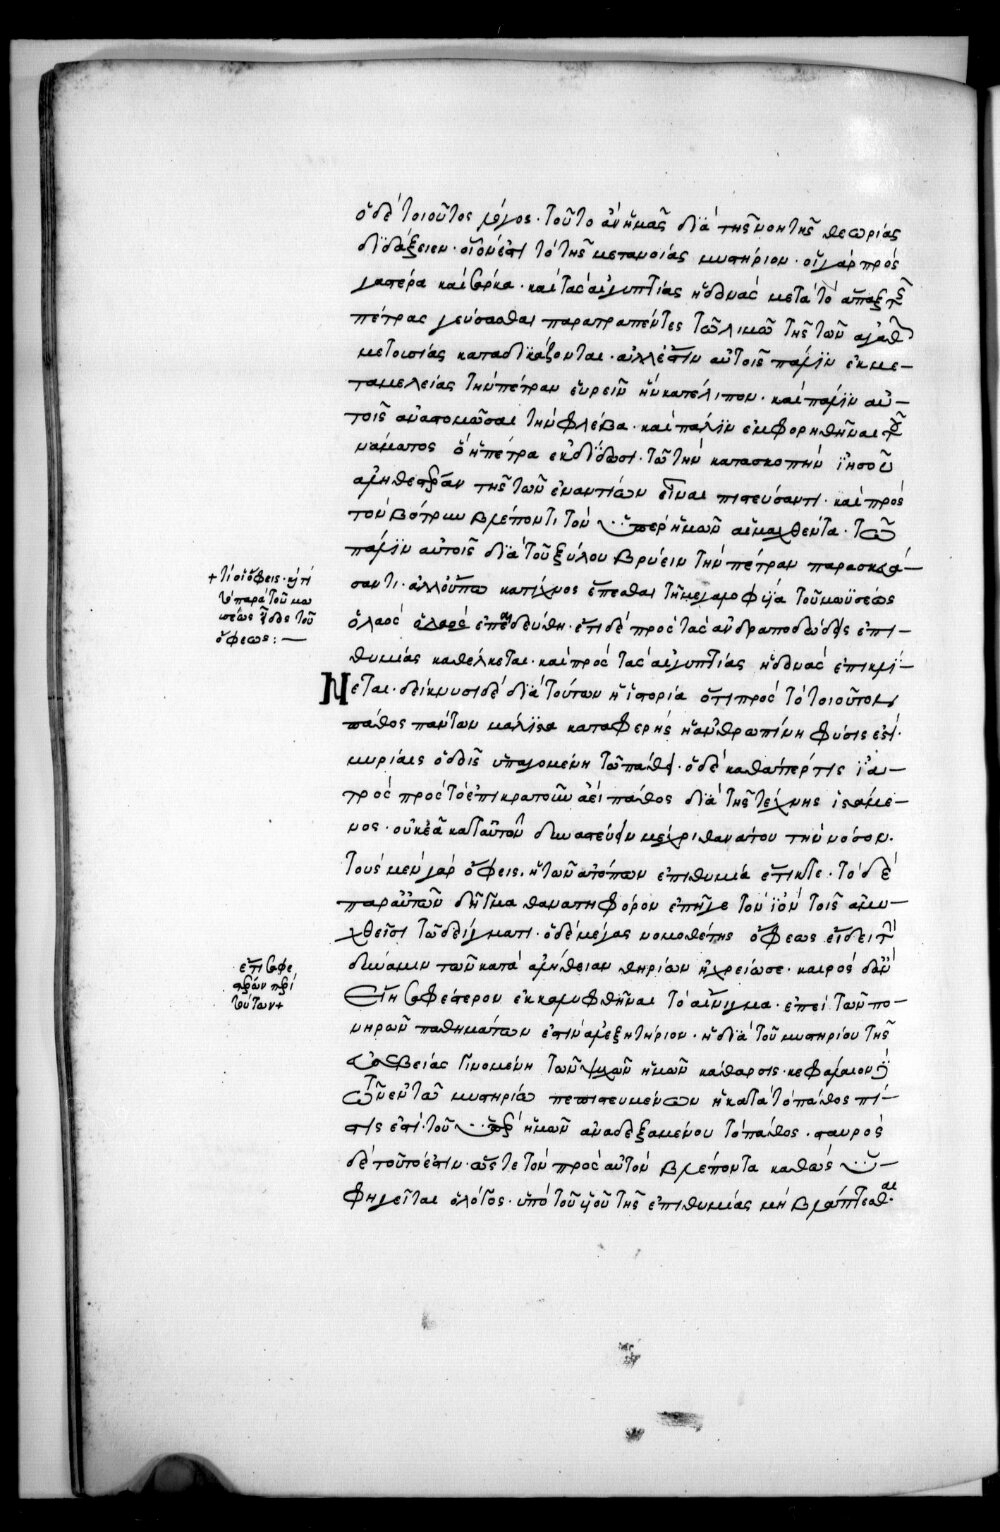 ὁ δὲ τοιοῦτος λόγος· τοῦτο ἂν ἡμᾶς διὰ τῆς νοητῆς θεωρίας
διδάξειεν· οἷόν ἐστι τὸ τῆς μετανοίας μυστήριον· οἱ γὰρ πρὸς
γαστέρα καὶ σάρκα· καὶ τὰς αἰγυπτίας ἡδονὰς μετὰ τὸ ἅπαξ τῆς
πέτρας γεύσασθαι παρατραπέντες τῶ λιμῶ τῆς τῶν ἀγαθῶν
μετουσίας καταδικάζονται· ἀλλ' ἔστιν αὐτοῖς πάλιν ἐκ με-
ταμελείας τὴν πέτραν εὑρεῖν ἣν κατέλιπον· καὶ πάλιν αὐ-
τοῖς ἀναστομῶσαι τὴν φλέβα· καὶ πάλιν ἐμφορηθῆναι τοῦ
νάματος ὃ ἡ πέτρα ἐκδίδωσι· τῶ τὴν κατασκοπὴν ἰησοῦ
ἀληθεστέραν τῆς τῶν ἐναντίων εἶναι πιστεύσαντι· καὶ πρὸς
τὸν βότρυν βλέποντι τὸν ὑπὲρ ἡμῶν αἱμαχθέντα· τῶ
πάλιν αὐτοῖς διὰ τοῦ ξύλου βρύειν τὴν πέτραν παρασκευά-
σαντι· ἀλλ' οὔπω κατ' ἴχνος ἕπεσθαι τῆ μεγαλοφυΐα τοῦ μωϋσέως
ὁ λαὸς ἐπαιδεύθη· ἔτι δὲ πρὸς τὰς ἀνδραποδώδεις ἐπι-
θυμίας καθέλκεται· καὶ πρὸς τὰς αἰγυπτίας ἡδονὰς ἐπικλί-
Νεται· δείκνυσι δὲ διὰ τούτων ἡ ἱστορία ὅτι πρὸς τὸ τοιοῦτον
πάθος πάντων μάλιστα καταφερὴς ἡ ἀνθρωπίνη φύσις ἐστί·
μυρίαις ὁδοῖς ὑπαγομένη τῶ πάθει· ὁ δὲ καθάπερ τις ἰα-
τρὸς πρὸς τὸ ἐπικρατοῦν ἀεὶ πάθος διὰ τῆς τέχνης ἱστάμε-
νος· οὐκ ἐᾶ κατ' αὐτῶν δυναστεύειν μέχρι θανάτου τὴν νόσον·
τοὺς μὲν γὰρ ὄφεις· ἡ τῶν ἀτόπων ἐπιθυμία ἔτικτε· τὸ δὲ
παρ' αὐτῶν δῆγμα θανατηφόρον ἐπῆγε τὸν ἰὸν τοῖς ἀμυ-
χθεῖσι τῶ δείγματι· ὁ δὲ μέγας νομοθέτης ὄφεως εἴδει τὴν
δύναμιν τῶν κατὰ ἀλήθειαν θηρίων ἠχρείωσε· καιρὸς δ' ἂν
εἴη σαφέστερον ἐκκαλυφθῆναι τὸ αἴνιγμα· ἐπεὶ τῶν πο-
νηρῶν παθημάτων ἐστὶν ἀλεξητήριον· ἡ διὰ τοῦ μυστηρίου τῆς
εὐσεβείας γινομένη τῶν ψυχῶν ἡμῶν κάθαρσις· κεφάλαιον δὲ
τῶν ἐν τῶ μυστηρίω πεπιστευμένων ἡ κατὰ τὸ πάθος πί-
στις ἐστὶ· τοῦ ὑπὲρ ἡμῶν ἀναδεξαμένου τὸ πάθος· σταυρὸς
δὲ τοῦτό ἐστιν· ὥστε τὸν πρὸς αὐτὸν βλέποντα καθὼς ὑ-
φηγεῖται ὁ λόγος· ὑπὸ τοῦ ἰοῦ τῆς ἐπιθυμίας μὴ βλάπτεσθαι·
+ τί οἱ ὄφεις· καὶ τί
τὸ παρὰ τοῦ μω
σέως εἶδος τοῦ
ὄφεως: —
ἔτι σαφέ
στερον περὶ
τούτων +